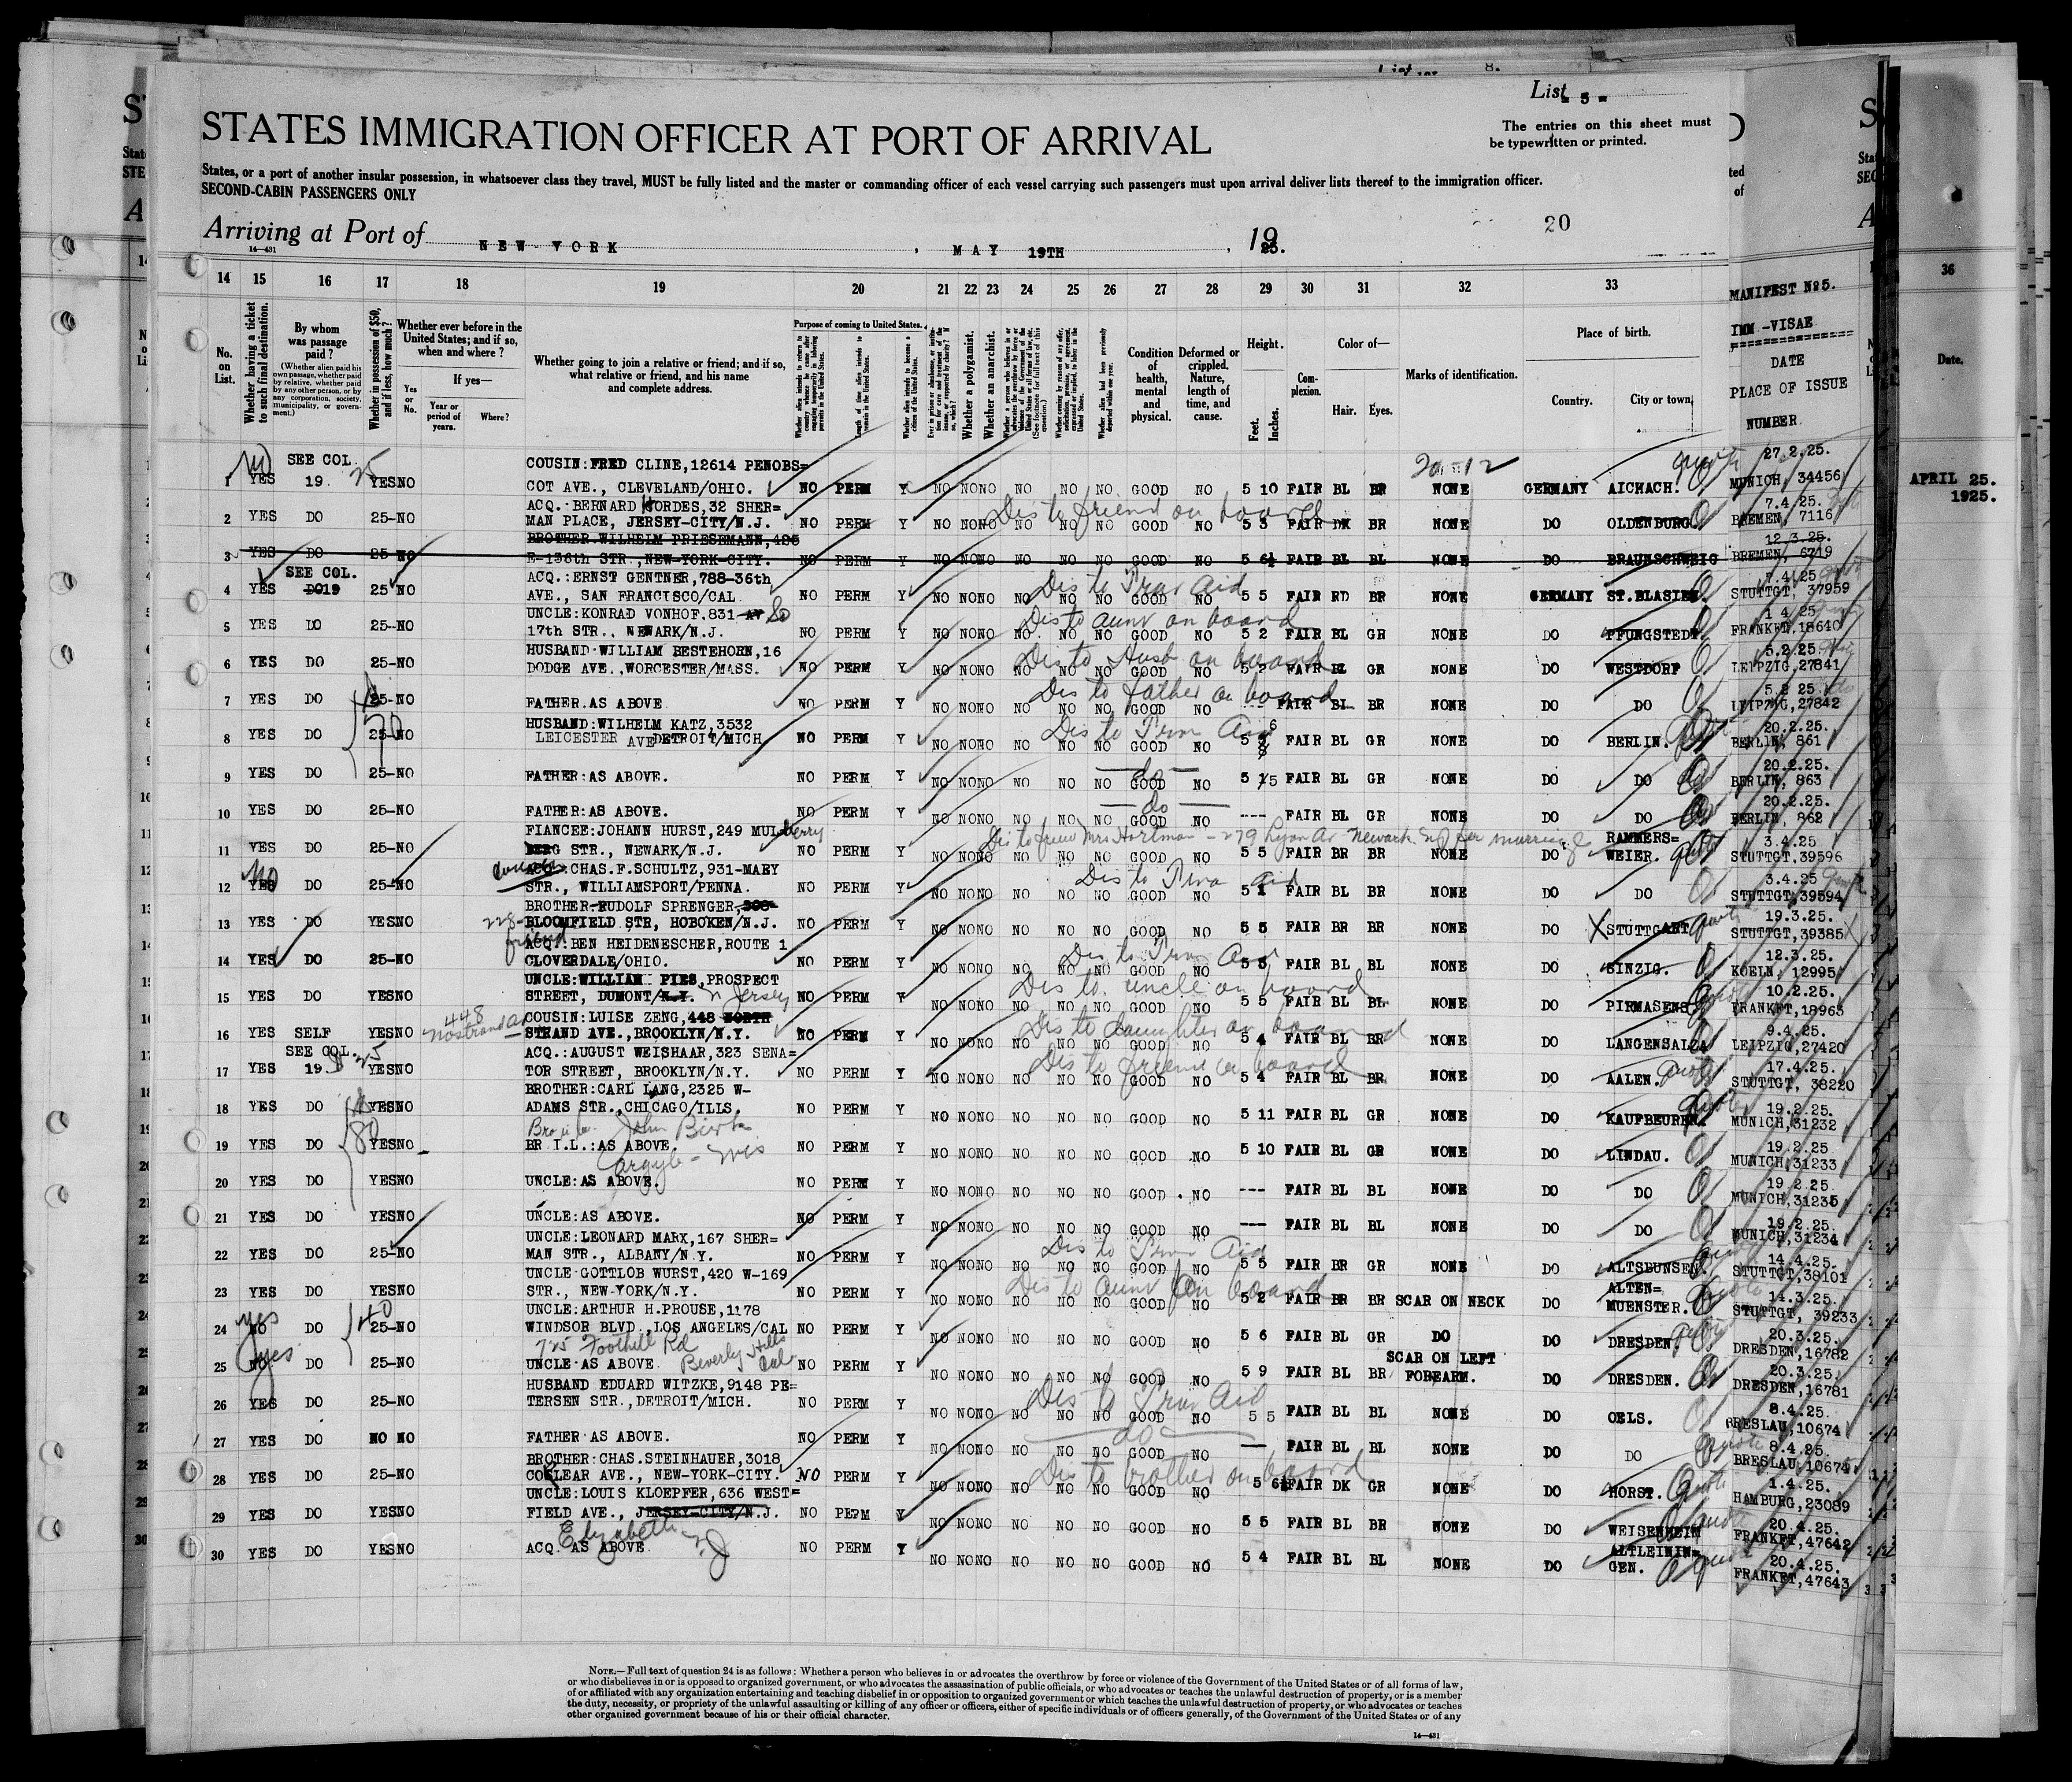 List - 5 -
The entries on this sheet must
be typewritten or printed.
STATES IMMIGRATION OFFICER AT PORT OF ARRIVAL
States, or a port of another insular possession, in whatsoever class they travel, MUST be fully listed and the master or commanding officer of each vessel carrying such passengers must upon arrival deliver lists thereof to the immigration officer.
SECOND-CABIN PASSENGERS ONLY
Arriving at Port of NEW-YORK, MAY 19TH, 1925.
20
14—431
14 15 16 17 18 19 20 21 22 23 24 25 26 27 28 29 30 31 32 33
No. on List.
Whether having a ticket to such final destination.
By whom was passage paid?
(Whether alien paid his own passage, whether paid by relative, whether paid by any other person, or by any corporation, society, municipality, or government.)
Whether in possession of $50, and if less, how much?
Whether ever before in the United States; and if so, when and where?
Yes or No.
If yes—
Year or period of years.
Where?
Whether going to join a relative or friend; and if so, what relative or friend, and his name and complete address.
Purpose of coming to United States.
Whether a polygamist.
Whether an anarchist.
Condition of health, mental and physical.
Deformed or crippled. Nature, length of time, and cause.
Height.
Feet. Inches.
Complexion.
Color of—
Hair. Eyes.
Marks of identification.
Place of birth.
Country. City or town,
MANIFEST Nº5.
IMM-VISAE
DATE
PLACE OF ISSUE
NUMBER
36
Date.
APRIL 25. 1925.
20-12
1 NO YES SEE COL. 19. 25 YES NO COUSIN:FRED CLINE,12614 PENOBS=
COT AVE., CLEVELAND/OHIO. NO PERM Y NO NO NO NO NO NO GOOD NO 5 10 FAIR BL BR NONE GERMANY AICHACH. 27.2.25. MUNICH, 34456
2 YES DO 25-NO ACQ.:BERNARD KORDES,32 SHER=
MAN PLACE, JERSEY-CITY/N.J. NO PERM Y NO NO NO NO NO NO GOOD NO 5 3 FAIR DK BR NONE DO OLDENBURG. 7.4.25. BREMEN, 7116
Dis to friend on board
3 YES DO 25 NO BROTHER WILHELM PRIESEMANN,485
E-136th STR.,NEW-YORK-CITY. NO PERM Y NO NO NO NO NO NO GOOD NO 5 6½ FAIR BL BL NONE DO BRAUNSCHWEIG 12.3.25. BREMEN, 6719
4 YES SEE COL. DO19 25 NO ACQ.:ERNST GENTNER,788-36th
AVE., SAN FRANCISCO/CAL. NO PERM Y NO NO NO NO NO NO GOOD NO 5 5 FAIR RD BR NONE GERMANY ST.BLASIEN. 7.4.25 STUTTGT, 37959
Dis to Trav Aid
5 YES DO 25-NO UNCLE:KONRAD VONHOF.831- So
17th STR., NEWARK/N.J. NO PERM Y NO NO NO NO. NO NO GOOD NO 5 2 FAIR BL GR NONE DO PFUNGSTEDT 1.4.25. FRANKFT,18640
Dis to aunt on board
6 YES DO 25-NO HUSBAND-WILLIAM BESTEHORN,16
DODGE AVE.,WORCESTER/MASS. NO PERM Y NO NO NO NO NO NO GOOD NO 5 2 FAIR BL GR NONE DO WESTDORF 5.2.25. LEIPZIG,27841
Dis to Husb on board
7 YES DO 25-NO FATHER.AS ABOVE NO PERM Y NO NO NO NO NO NO GOOD NO --- FAIR BL BR NONE DO DO 5.2.25. LEIPZIG,27842
Dis to father on board
8 YES DO 25-NO HUSBAND:WILHELM KATZ,3532
LEICESTER AVE DETROIT/MICH NO PERM Y NO NO NO NO NO NO GOOD NO 5 6 FAIR BL GR NONE DO BERLIN. 20.2.25. BERLIN, 861
Dis to Trav Aid
9 YES DO 25-NO FATHER:AS ABOVE. NO PERM Y NO NO NO NO NO NO GOOD NO 5 5 FAIR BL GR NONE DO DO 20.2.25. BERLIN, 863
— do —
10 YES DO 25-NO FATHER:AS ABOVE. NO PERM Y NO NO NO NO NO NO GOOD NO --- FAIR BL GR NONE DO DO 20.2.25. BERLIN, 862
— do —
11 YES DO 25-NO FIANCEE:JOHANN HURST,249 MULberry
BERG STR., NEWARK/N.J. NO PERM Y NO NO NO NO NO NO GOOD NO 5 5 FAIR BR BR NONE DO RAMMERS=
WEIER. 3.4.25 STUTTGT,39596
Dis to friend Mrs Hartman - 279 Lyon Av Newark NJ for marriage
12 NO YES DO 25-NO cousin ACQ.:CHAS.F.SCHULTZ,931-MARY
STR., WILLIAMSPORT/PENNA. NO PERM Y NO NO NO NO NO NO GOOD NO 5 4 FAIR BL BR NONE DO DO 3.4.25 STUTTGT,39594
Dis to Trav Aid
13 YES DO YES NO BROTHER-RUDOLF SPRENGER,308-
228- BLOOMFIELD STR, HOBOKEN/N.J. NO PERM Y NO NO NO NO NO NO GOOD NO 5 5 FAIR BR BR NONE DO X STUTTGART 19.3.25. STUTTGT,39385
14 YES DO 25-NO friend ACQ.:BEN HEIDENESCHER,ROUTE 1
CLOVERDALE/OHIO. NO PERM Y NO NO NO NO NO NO GOOD NO 5 5 FAIR BL BL NONE DO SINZIG. 12.3.25. KOELN, 12995
Dis to Trav Aid
15 YES DO YES NO UNCLE:WILLIAM PIES,PROSPECT
STREET, DUMONT/N.Y. N Jersey NO PERM Y NO NO NO NO NO NO GOOD NO 5 5 FAIR BL BL NONE DO PIRMASENS 10.2.25. FRANKFT,18963
Dis to uncle on board
16 YES SELF YES NO 448 Nostrand Av COUSIN:LUISE ZENG,448 NORTH
STRAND AVE.,BROOKLYN/N.Y. NO PERM Y NO NO NO NO NO NO GOOD NO 5 4 FAIR BL BR NONE DO LANGENSALZA 9.4.25. LEIPZIG,27420
Dis to daughter on board
17 YES SEE COL. 19. $25 YES NO ACQ.:AUGUST WEISHAAR,323 SENA=
TOR STREET, BROOKLYN/N.Y. NO PERM Y NO NO NO NO NO NO GOOD NO 5 4 FAIR BL BR NONE DO AALEN. 17.4.25. STUTTGT, 38220
Dis to friend on board
18 YES DO YES NO BROTHER:CARL LANG,2325 W-
ADAMS STR.,CHICAGO/ILLS. NO PERM Y NO NO NO NO NO NO GOOD NO 5 11 FAIR BL GR NONE DO KAUFBEUREN. 19.2.25. MUNICH,31232
19 YES DO 80 YES NO BR.I.L.:AS ABOVE. NO PERM Y NO NO NO NO NO NO GOOD NO 5 10 FAIR BL GR NONE DO LINDAU. 19.2.25 MUNICH,31233
Argyle - Wis
20 YES DO YES NO UNCLE:AS ABOVE. NO PERM Y NO NO NO NO NO NO GOOD NO --- FAIR BL BL NONE DO DO 19.2.25. MUNICH,31235
21 YES DO YES NO UNCLE:AS ABOVE. NO PERM Y NO NO NO NO NO NO GOOD NO --- FAIR BL BL NONE DO DO 19.2.25. MUNICH,31234
22 YES DO 25-NO UNCLE:LEONARD MARX,167 SHER=
MAN STR., ALBANY/N.Y. NO PERM Y NO NO NO NO NO NO GOOD NO 5 5 FAIR BR GR NONE DO ALTSBUNSEN. 14.4.25. STUTTGT,38101
Dis to Trav Aid
23 YES DO YES NO UNCLE-GOTTLOB WURST,420 W-169
STR., NEW-YORK/N.Y. NO PERM Y NO NO NO NO NO NO GOOD NO 5 2 FAIR BR BR SCAR ON NECK DO ALTEN=
MUENSTER. 14.3.25. STUTTGT, 39233
Dis to aunt on board
24 yes NO DO 40 25-NO UNCLE:ARTHUR H.PROUSE,1178
WINDSOR BLVD.,LOS ANGELES/CAL NO PERM Y NO NO NO NO NO NO GOOD NO 5 6 FAIR BL GR DO DO DRESDEN. 20.3.25. DRESDEN,16782
725 Foothill Rd Beverly Hills Cal
25 yes NO DO 25-NO UNCLE.AS ABOVE NO PERM Y NO NO NO NO NO NO GOOD NO 5 9 FAIR BL BR SCAR ON LEFT
FOREARM. DO DRESDEN. 20.3.25. DRESDEN,16781
26 YES DO 25-NO HUSBAND EDUARD WITZKE,9148 PE=
TERSEN STR.,DETROIT/MICH. NO PERM Y NO NO NO NO NO NO GOOD NO 5 5 FAIR BL BL NONE DO OELS. 8.4.25. BRESLAU,10674
Dis to Trav Aid
27 YES DO NO NO FATHER AS ABOVE. NO PERM Y NO NO NO NO NO NO GOOD NO --- FAIR BL BL NONE DO DO 8.4.25. BRESLAU,10674
do
28 YES DO 25-NO BROTHER:CHAS.STEINHAUER,3018
COGLEAR AVE., NEW-YORK-CITY. NO PERM Y NO NO NO NO NO NO GOOD NO 5 6½ FAIR DK GR NONE DO HORST. 1.4.25. HAMBURG,23089
Dis to brother on board
29 YES DO YES NO UNCLE:LOUIS KLOEPFER,636 WEST=
FIELD AVE., JERSEY-CITY/N.J. NO PERM Y NO NO NO NO NO NO GOOD NO 5 5 FAIR BL BR NONE DO WEISENHEIM 20.4.25. FRANKFT,47642
Elizabeth N.J
30 YES DO YES NO ACQ. AS ABOVE NO PERM Y NO NO NO NO NO NO GOOD NO 5 4 FAIR BL BL NONE DO ALTLEININ=
GEN. 20.4.25. FRANKFT,47643
NOTE.—Full text of question 24 is as follows: Whether a person who believes in or advocates the overthrow by force or violence of the Government of the United States or of all forms of law,
or who disbelieves in or is opposed to organized government, or who advocates the assassination of public officials, or who advocates or teaches the unlawful destruction of property, or is a member
of or affiliated with any organization entertaining and teaching disbelief in or opposition to organized government or which teaches the unlawful destruction of property, or who advocates or teaches
the duty, necessity, or propriety of the unlawful assaulting or killing of any officer or officers, either of specific individuals or of officers generally, of the Government of the United States or of any
other organized government because of his or their official character.
14—431